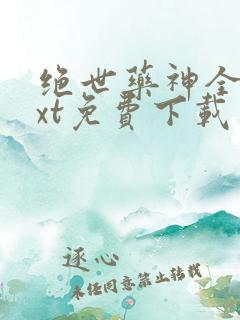 绝世药神全
xt免费下载
逐心
未经同意禁止转载